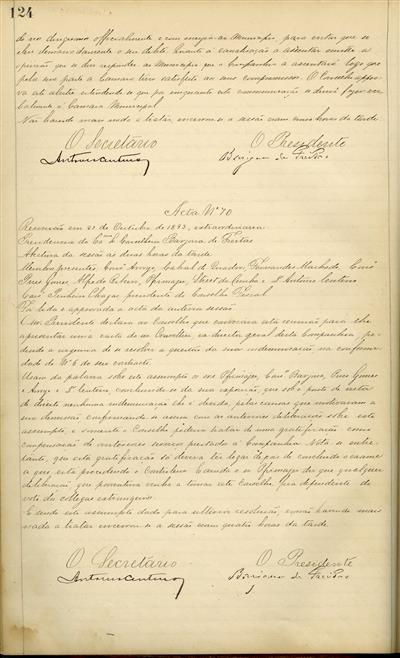 124
de se dirigirem officialmente e com energia ao Municipio, para evitar que se
eleve demasiadamente o seu debito. Quanto á canalisação a assentar emitte a
opinião que se deve responder ao Municipio que a Companhia a assentará logo que
pela sua parte a Camara tiver satisfeito ao seu compromisso. O Conselho appro-
va este alvitre entendendo-se que por emquanto esta communicação se deverá fazer ver-
balmente á Camara Municipal.
Não havendo mais nada a tratar encerrou-se a sessão eram  horas da tarde.
O Secretario O Presidente
Antonio Centeno Barjona de Freitas
Acta Nº 70
Reunião em 21 de Outubro de 1893, extraordinaria
Presidencia do Exmo Sr. Conselheiro Barjona de Freitas
Abertura da sessão ás duas horas da tarde
Membros presentes, Exmos Srs.  Cabral de Quadros, Fernandes Machado, Luiz
Peres Gomes, Alfredo Ribeiro, Street da Cunha e Dr Antonio Centeno
Pinheiro Chagas, presidente do Conselho Fiscal.
Foi lida e approvada a acta da anterior sessão
O Sr. Presidente declara ao Conselho que convocára esta reunião para lhe
apresentar uma carta do ex director geral desta Companhia, pe-
dindo a urgencia de se resolver a questão da sua indemnisação na conformi-
dade do Nº 6 do seu contracto.
Usam da palavra sobre este assumpto os Srs.  Peres Gomes
e Dr Centeno, concluindo-se da sua exposição, que sob o ponto de vista
de direito nenhuma indemnisação lhe é devida, pelas causas que motivaram a
sua demissão confirmando-se assim com as anteriores deliberações sobre este
assumpto, e sómente o Conselho poderá tratar de uma gratificação como
compensação de anteriores serviços prestados á Companhia. Nota-se entre-
tanto, que esta gratificação só deverá ter logar depois de concluido o exame
a que está procedendo o Contencioso  que qualquer
deliberação que porventura venha a tomar este Conselho, fica dependente do
voto dos collegas estrangeiros.
Ficando este assumpto dado para ulterior resolução, e não havendo mais
nada a tratar encerrou-se a sessão eram quatro horas da tarde.
O Secretario O Presidente
Antonio Centeno Barjona de Freitas